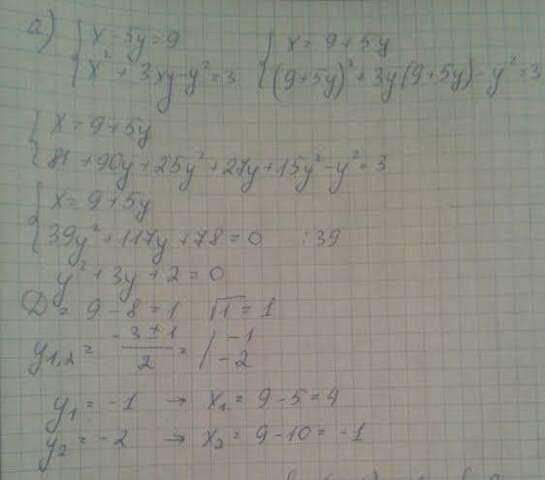 а) { x - 5y = 9 { x = 9 + 5y
x² + 3xy - y² = 3 (9+5y)² + 3y(9+5y) - y² = 3
{ x = 9 + 5y
81 + 90y + 25y² + 27y + 15y² - y² = 3
{ x = 9 + 5y
39y² + 117y + 78 = 0 :39
y² + 3y + 2 = 0
D = 9 - 8 = 1 √1 = 1
y₁,₂ = (-3 ± 1)/2 = / -1
-2
y₁ = -1 → x₁ = 9 - 5 = 4
y₂ = -2 → x₂ = 9 - 10 = -1